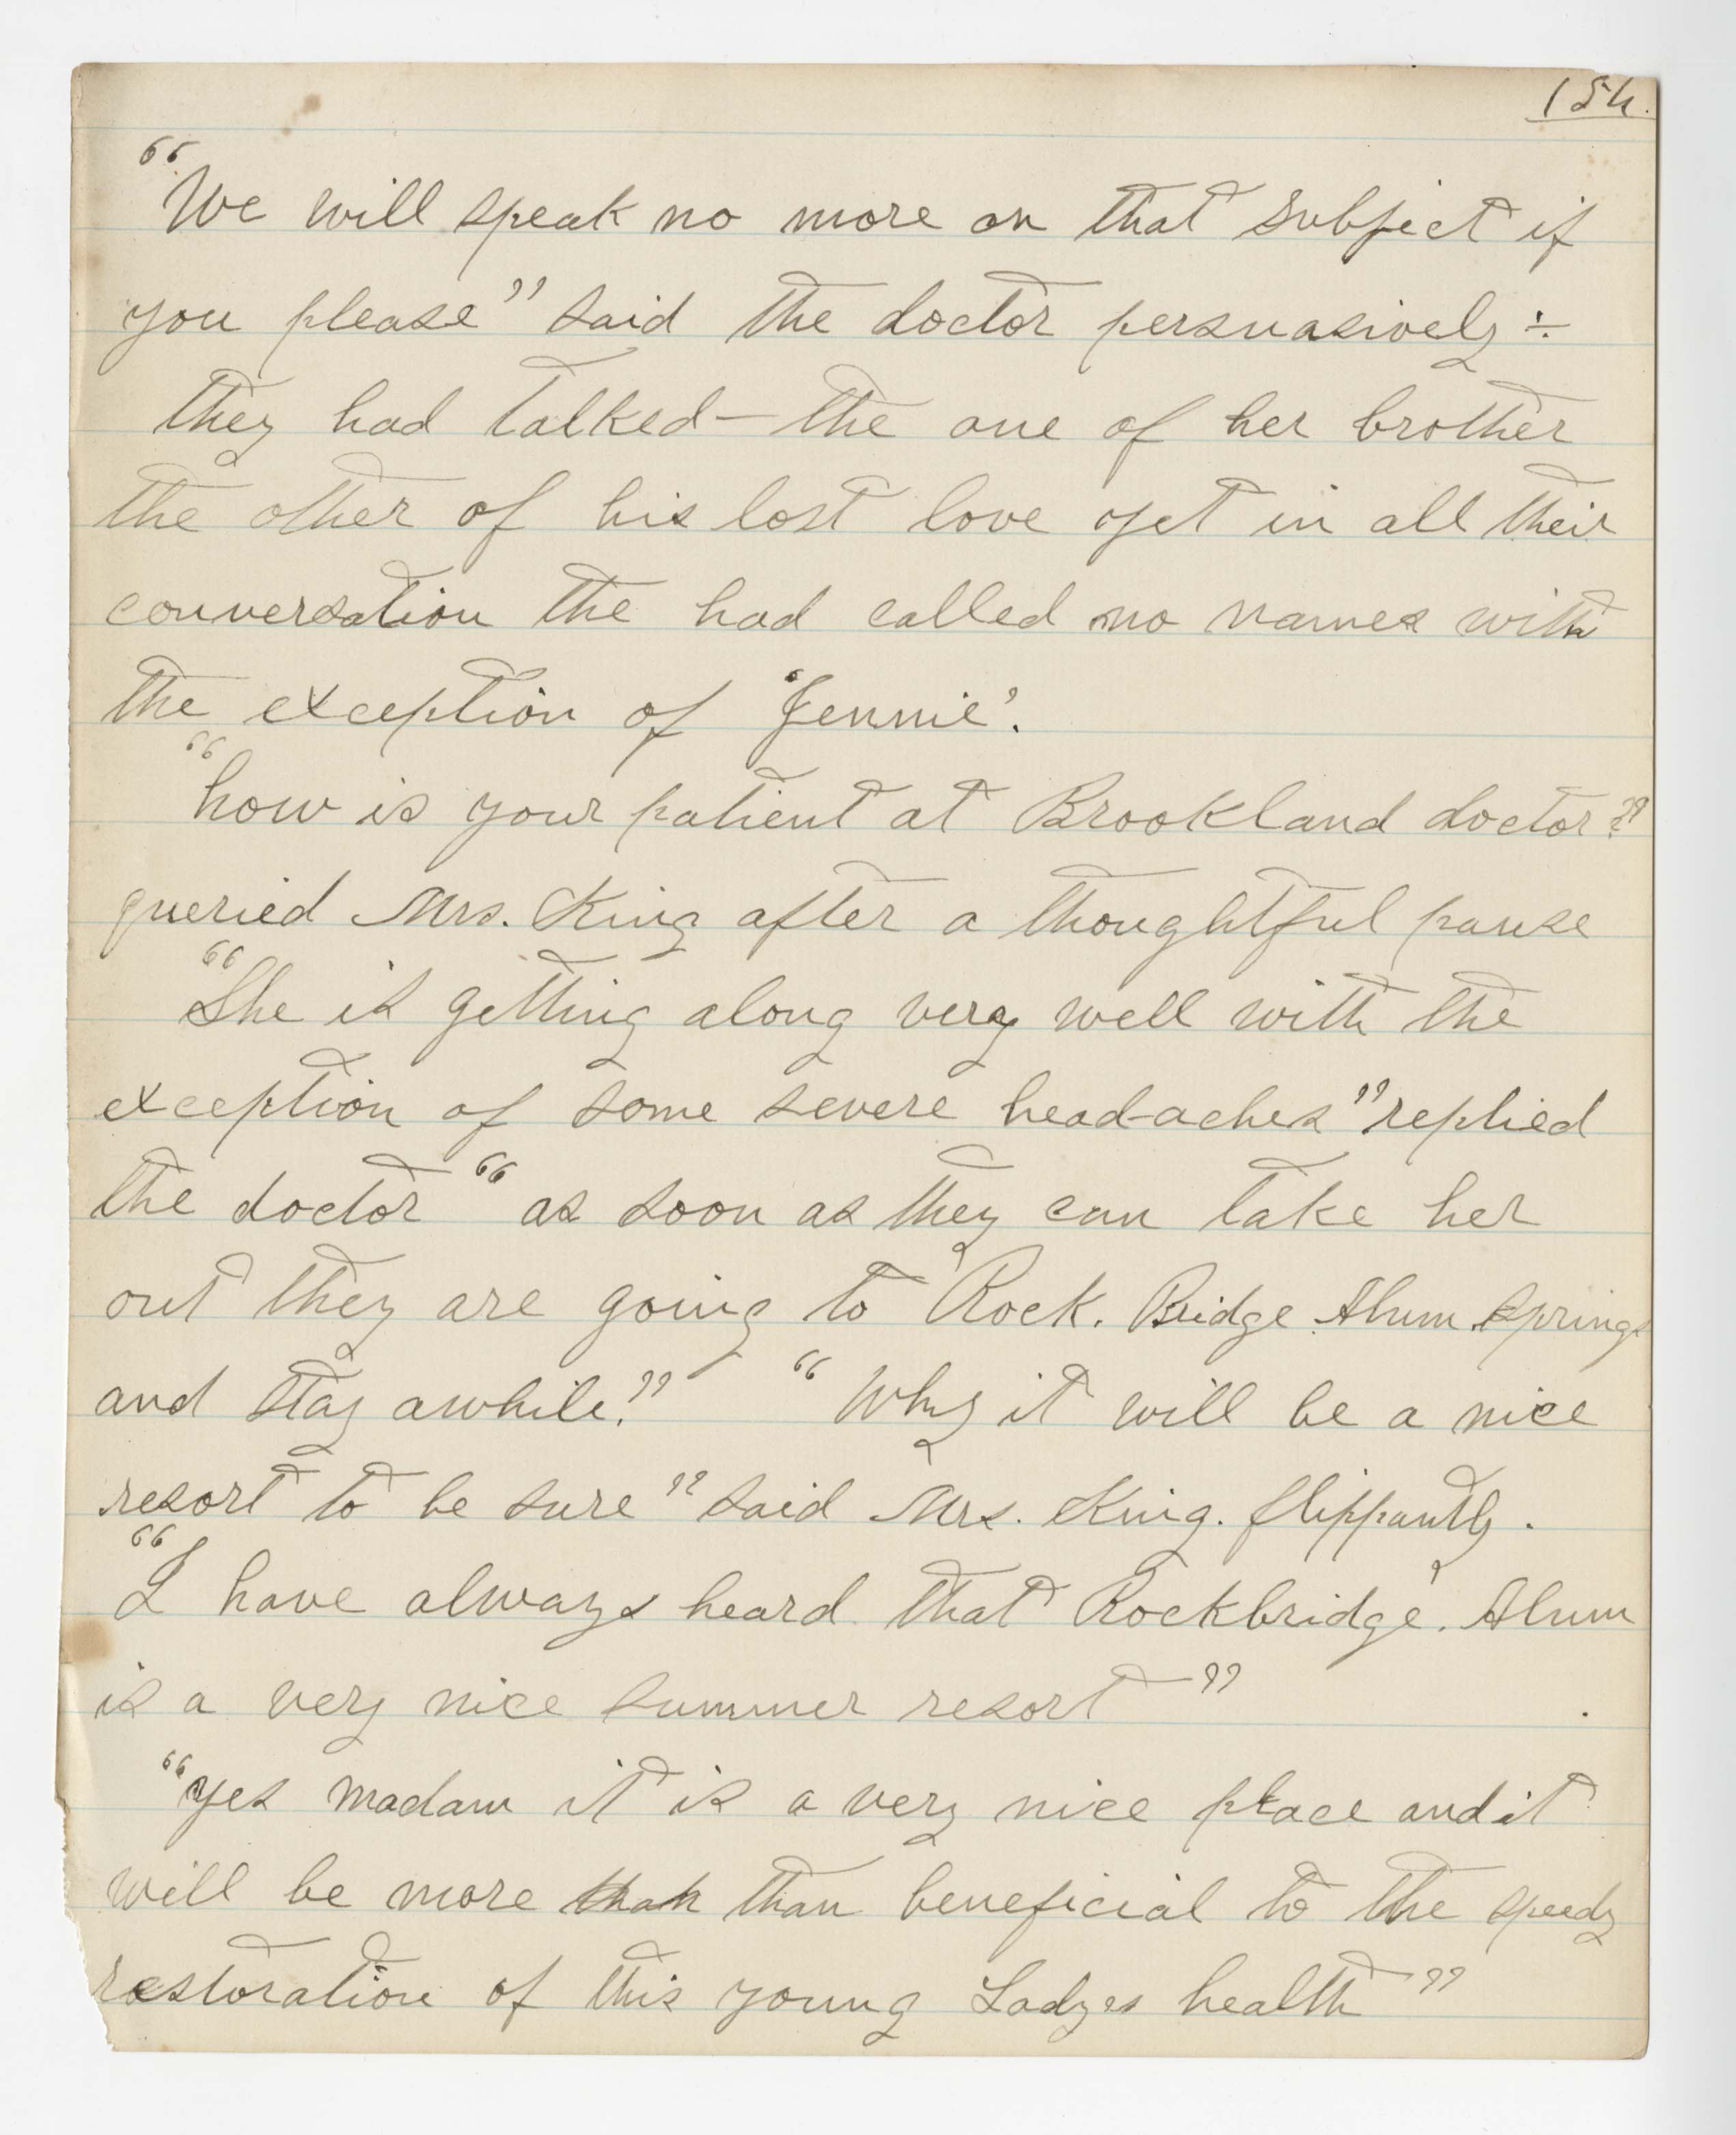 154.
"We will speak no more on that subject if
you please" said the doctor persuasively ÷
they had talked — the one of her brother
the other of his lost love yet in all their
conversation the had called no names with
the exception of 'Jennie'.
"how is your patient at Brookland doctor?"
queried Mrs. King after a thoughtful pause
"She is getting along very well with the
exception of some severe head-aches" replied
the doctor "as soon as they can take her
out they are going to Rock. Bridge Alum Springs
and stay awhile." "Why it will be a nice
resort to be sure" said Mrs. King. flippantly.
"I have always heard that Rockbridge. Alum
is a very nice summer resort"
"yes madam it is a very nice place and it
will be more than than beneficial to the speedy
restoration of this young Ladyes health"